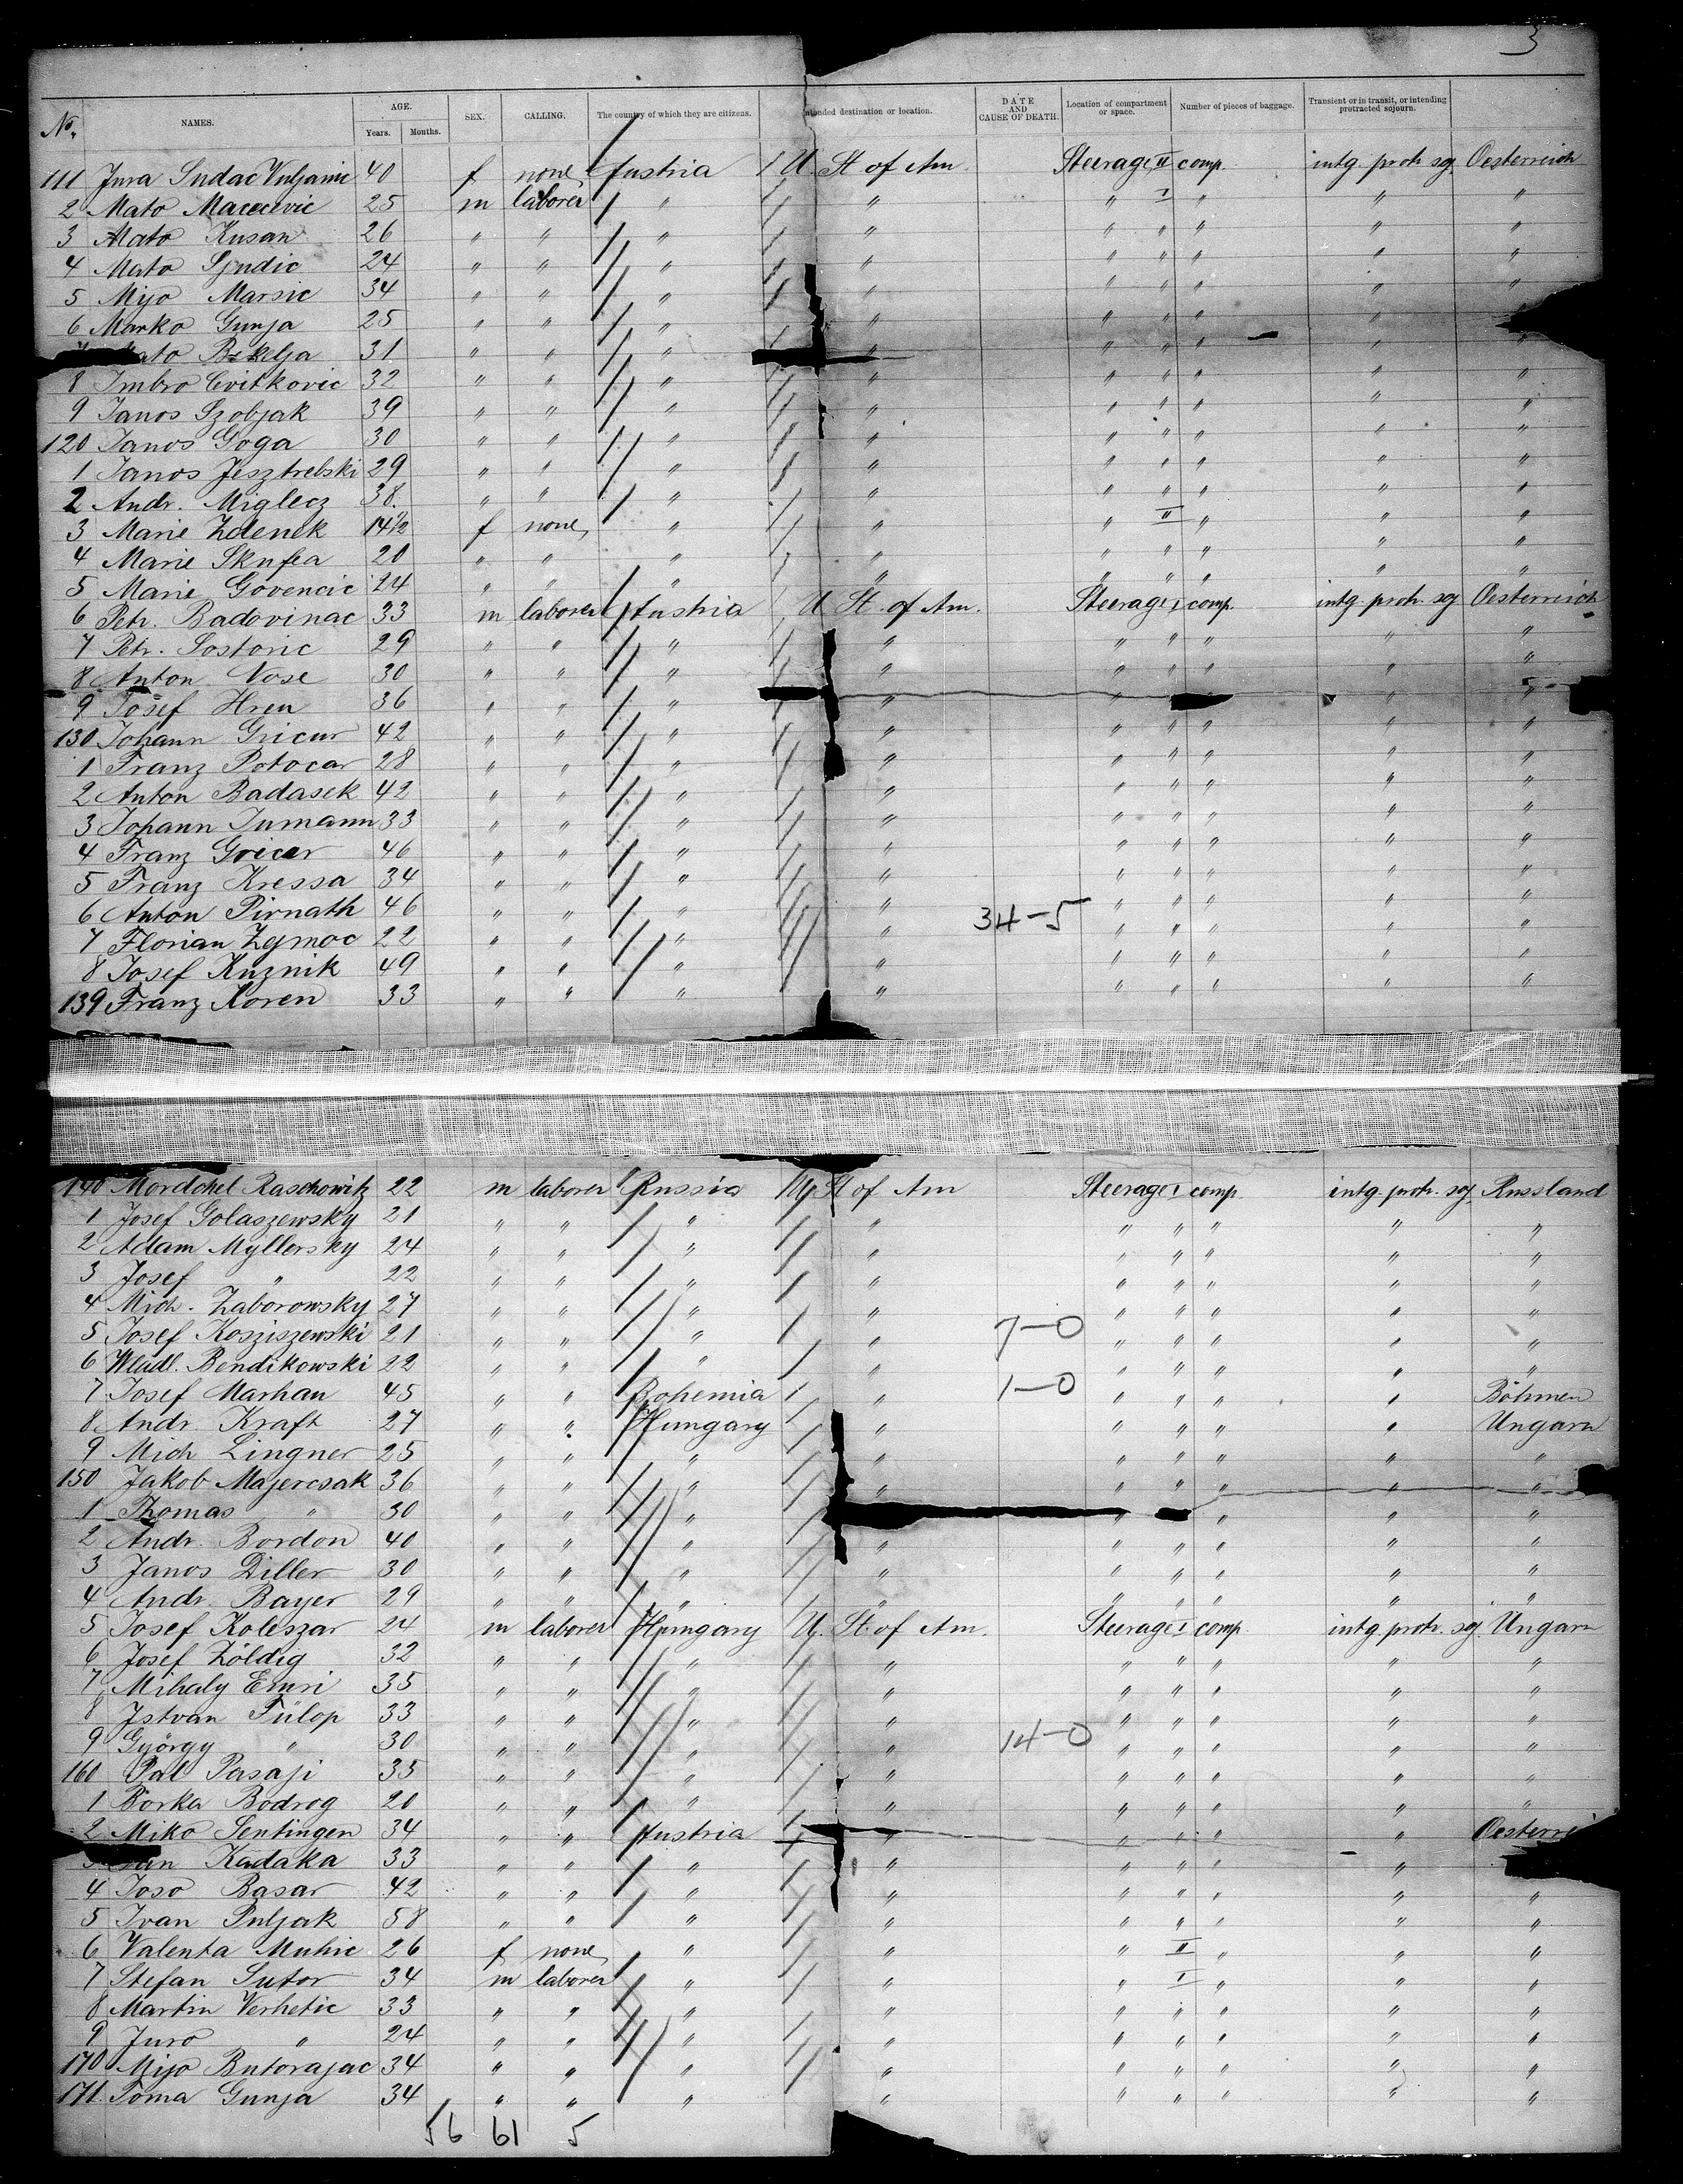 3
No. NAMES. AGE. Years. Months. SEX. CALLING. The country of which they are citizens. Intended destination or location. DATE AND CAUSE OF DEATH. Location of compartment or space. Number of pieces of baggage. Transient or in transit, or intending protracted sojourn.
111 Jura Sudac Vuljanic 40 f none Austria 1 U. St of Am. Steerage II comp. intg. protr. sg. Oesterreich
2 Mato Macecevic 25 m laborer " / " " I " " "
3 Mato Kusan 26 " " " " " " " " "
4 Mato Spudic 24 " " " " " " " " "
5 Mijo Marsic 34 " " " " " " " " "
6 Marko Gunja 25 " " " " " " " " "
ato Bskelja 31 " " " " " " " " "
8 Imbro Cvitkovic 32 " " " " " " " " "
9 Janos Szobjak 39 " " " " " " " " "
120 Janos Goga 30 " " " " " " " " "
1 Janos Jesztrebski 29 " " " " " " " " "
2 Andr. Miglecz 38. " " " " " " " " "
3 Marie Zdenek 14½ f none " " " II " " "
4 Marie Sknfea 20 " " " " " " " " "
5 Marie Govencic 24 " " " " " " " " "
6 Petr. Badovinac 33 m laborer Austria U St. of Am. Steerage I comp. intg. protr. sg Oesterreich
7 Petr. Sostoric 29 " " " " " " " " "
8 Anton Vose 30 " " " " " " " " "
9 Josef Hren 36 " " " " " " " "
130 Johann Gricur 42 " " " " " " " " "
1 Franz Potocar 28 " " " " " " " " "
2 Anton Badasek 42 " " " " " " " " "
3 Johann Jumann 33 " " " " " " " " "
4 Franz Gricer 46 " " " " " " " " "
5 Franz Kressa 34 " " " " " " " " "
6 Anton Pirnath 46 " " " " 34-5 " " " " "
7 Florian Zgmoc 22 " " " " " " " " "
8 Josef Kuznik 49 " " " " " " " " "
139 Franz Koren 33 " " " " " " " " "
140 Mordchel Raschowitz 22 m laborer Russia U St of Am Steerage I comp. intg. protr. sg. Russland
1 Josef Golaszewsky 21 " " " " " " " " "
2 Adam Myllersky 24 " " " " " " " " "
3 Josef " 22 " " " " " " " " "
4 Mich. Zaborowsky 27 " " " " " " " " "
5 Josef Kosziszewski 21 " " " " 7-0 " " " " "
6 Wladl. Bendikowski 22 " " " " " " " " "
7 Josef Marhan 45 " " Bohemia 1 " 1-0 " " " " Böhmen
8 Andr. Kraft 27 " " Hungary " " " " " Ungarn
9 Mich Lingner 25 " " " " " " " " "
150 Jakob Majercsak 36 " " " " " " " " "
1 Thomas " 30 " " " " " " " "
2 Andr. Bordon 40 " " " " " " " " "
3 Janos Diller 30 " " " " " " " " "
4 Andr. Bayer 29 " " " " " " " " "
5 Josef Koleszar 24 m laborer Hungary U. St. of Am. Steerage I comp intg. protr. sg. Ungarn
6 Josef Zöldig 32 " " " " " " " " "
7 Mihaly Emri 35 " " " " " " " " "
8 Istvan Fülop 33 " " " " " " " " "
9 György " 30 " " " " 14-0 " " " " "
160 Pal Pasaji 35 " " " " " " " " "
1 Borka Bodrog 20 " " " " " " " " "
2 Miko Sentingen 34 " " Austria " " " " " Oesterrei
Kadaka 33 " " " " " " " "
4 Joso Basar 42 " " " " " " " " "
5 Ivan Puljak 58 " " " " " " " " "
6 Valenta Muhic 26 f none " " " II " " "
7 Stefan Sutor 34 m laborer " " " I " " "
8 Martin Verhetic 33 " " " " " " " " "
9 Juro " 24 " " " " " " " " "
170 Mijo Butorajac 34 " " " " " " " " "
171. Toma Gunja 34 " " " " " " " " "
56 61 5